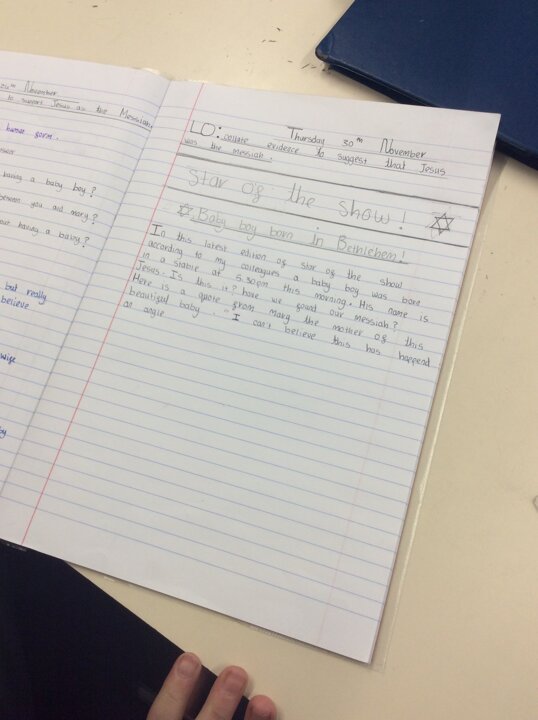 24th November
to support Jesus as the Messiah
human form.
having a baby boy?
between you and mary?
out having a baby?
but really
believe
wife
Thursday 30th November
LO: collate evidence to suggest that Jesus
was the messiah.
Star of the show!
Baby boy born in Bethlehem!
In this latest edition of star of the show
according to my colleagues a baby boy was bore
in a stable at 5:30pm this morning. His name is
Jesus. Is this it? have we found our messiah?
Here is a quote from mary the mother of this
beautiful baby. "I can't believe this has happend
an angle